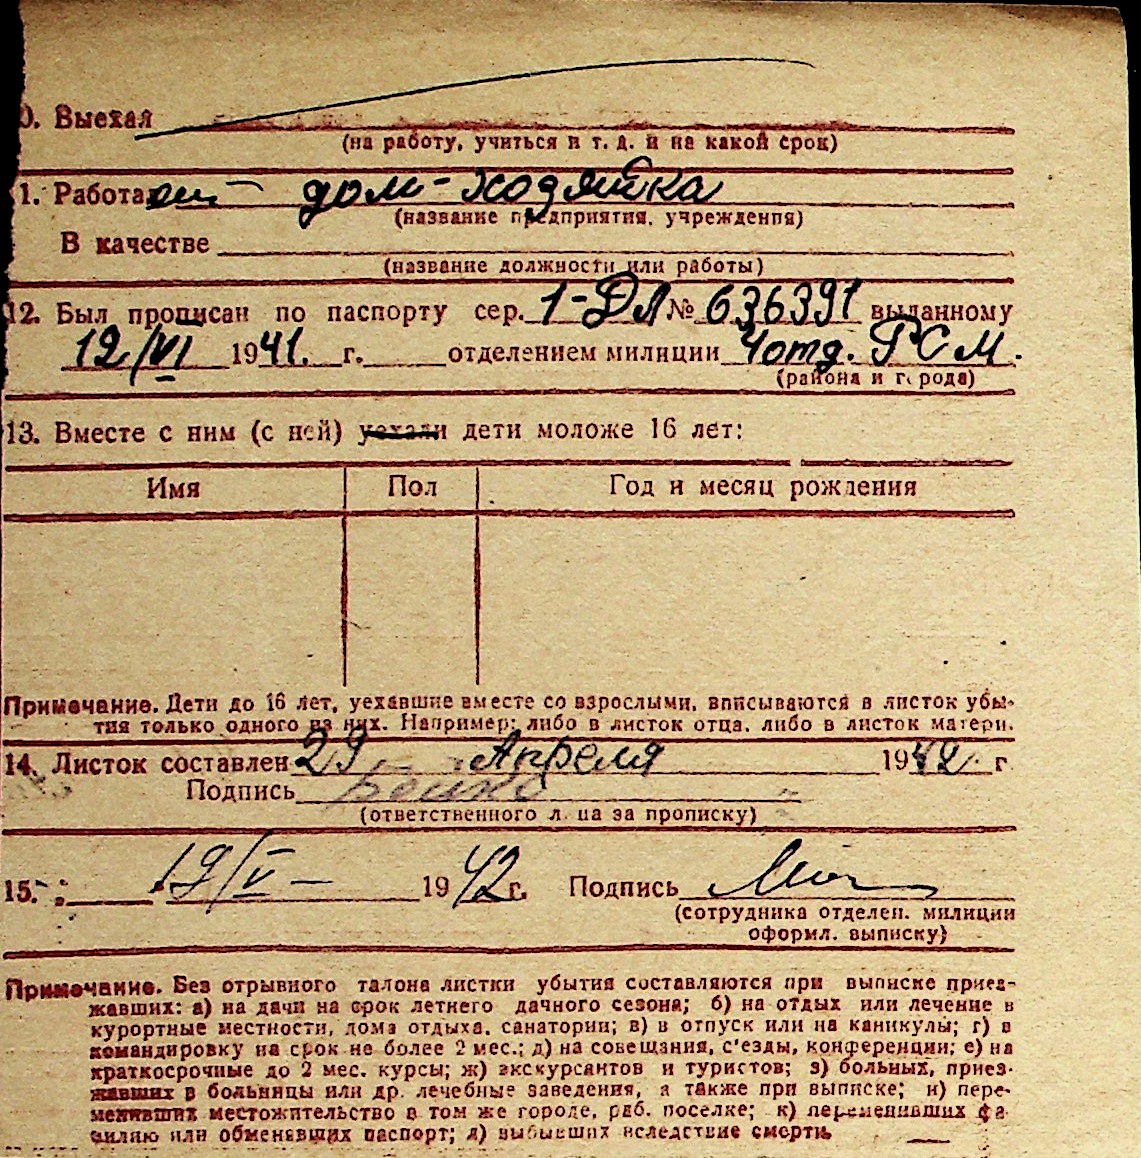 0. Выехал
(на работу, учиться и т. д. и на какой срок)
1. Работа дом-хозяйка
(название предприятия, учреждения)
В качестве
(название должности или работы)
12. Был прописан по паспорту сер. 1-ДЛ № 636391 выданному
12/VI 1941. г. отделением милиции 4 отд. РСМ.
(района и города)
13. Вместе с ним (с ней) уехали дети моложе 16 лет:
Имя Пол Год и месяц рождения
Примечание. Дети до 16 лет, уехавшие вместе со взрослыми, вписываются в листок убы-
тия только одного из них. Например: либо в листок отца, либо в листок матери.
14. Листок составлен 29 Апреля 1942. г
Подпись
(ответственного лица за прописку)
15. 19/V — 1942 г. Подпись
(сотрудника отделен. милиции
оформл. выписку)
Примечание. Без отрывного талона листки убытия составляются при выписке приез-
жавших: а) на дачи на срок летнего дачного сезона; б) на отдых или лечение в
курортные местности, дома отдыха, санатории; в) в отпуск или на каникулы; г) в
командировку на срок не более 2 мес.; д) на совещания, с'езды, конференции; е) на
краткосрочные до 2 мес. курсы; ж) экскурсантов и туристов; з) больных, приез-
жавших в больницы или др. лечебные заведения, а также при выписке; и) пере-
менивших местожительство в том же городе, раб. поселке; к) переменивших фа-
милию или обменявших паспорт; л) выбывших вследствие смерти.